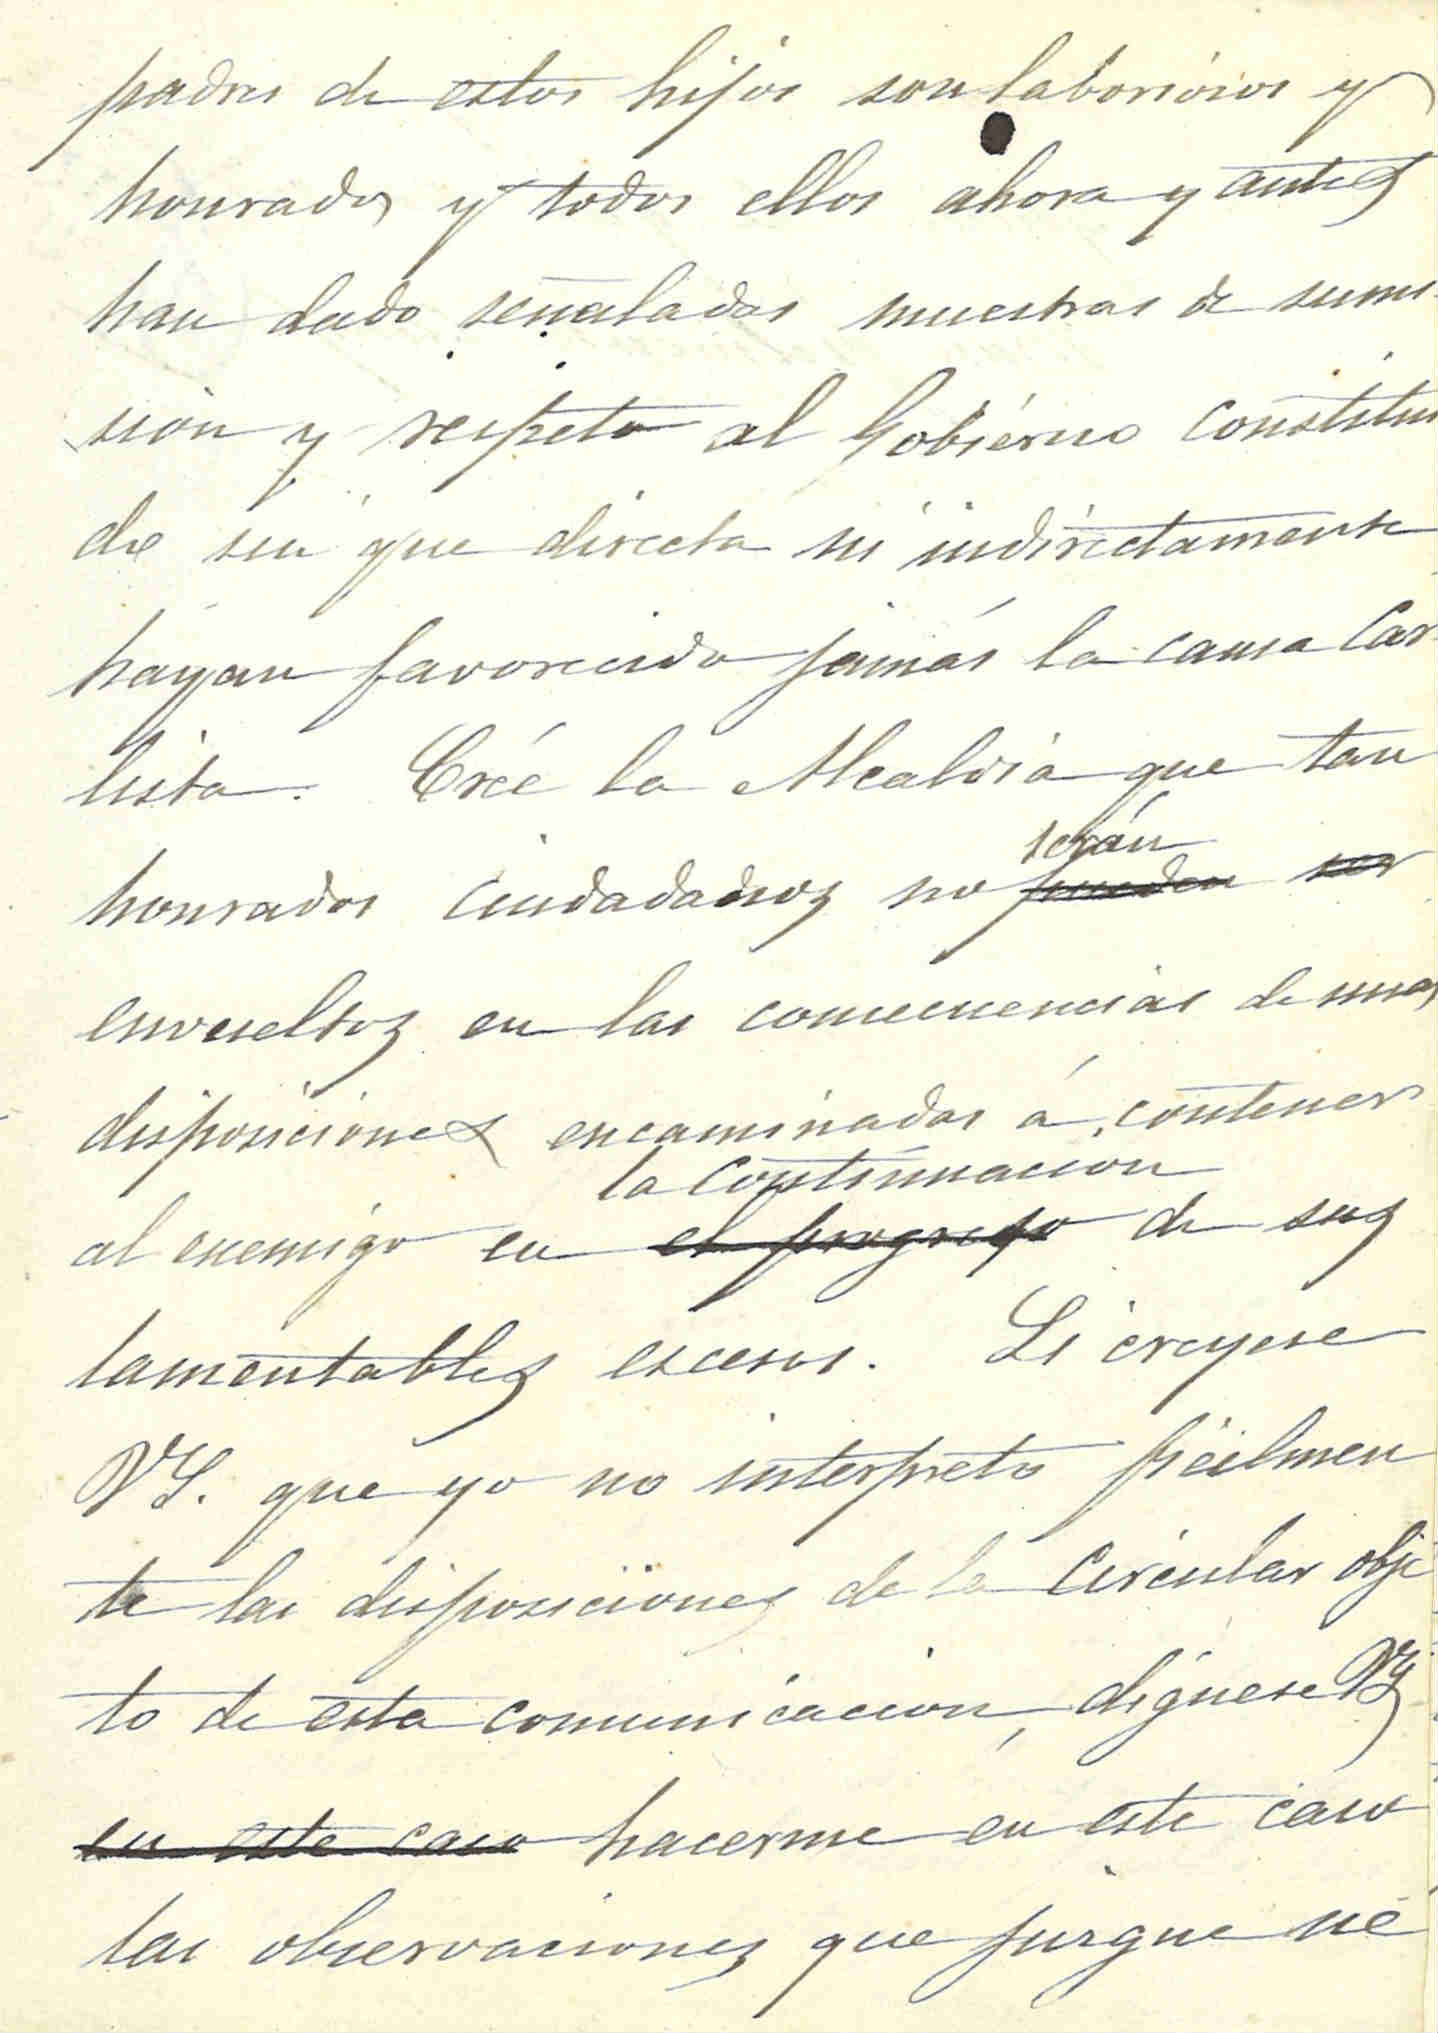 padres de estos hijos son laboriosos y
honrados y todos ellos ahora y antes
han dado señaladas muestras de sumi
sión y respeto al Gobiérno constitui
do sin que directa ni indirectamente
hayan favorecido jamás la causa Car
lista. Creé la Alcaldia que tan
serán
honrados ciudadanos no pueden ser
envueltos en las consecuencias de unas
disposiciones encaminadas á contener
la continuacion
al enemigo en el progreso de sus
lamentables escesos. Si creyese
VS. que yo no interpreto fiélmen
te las disposiciones de la Circular obje
to de esta comunicacion, dígnese VS
en este caso hacerme en este caso
las observaciones que jusgue ne